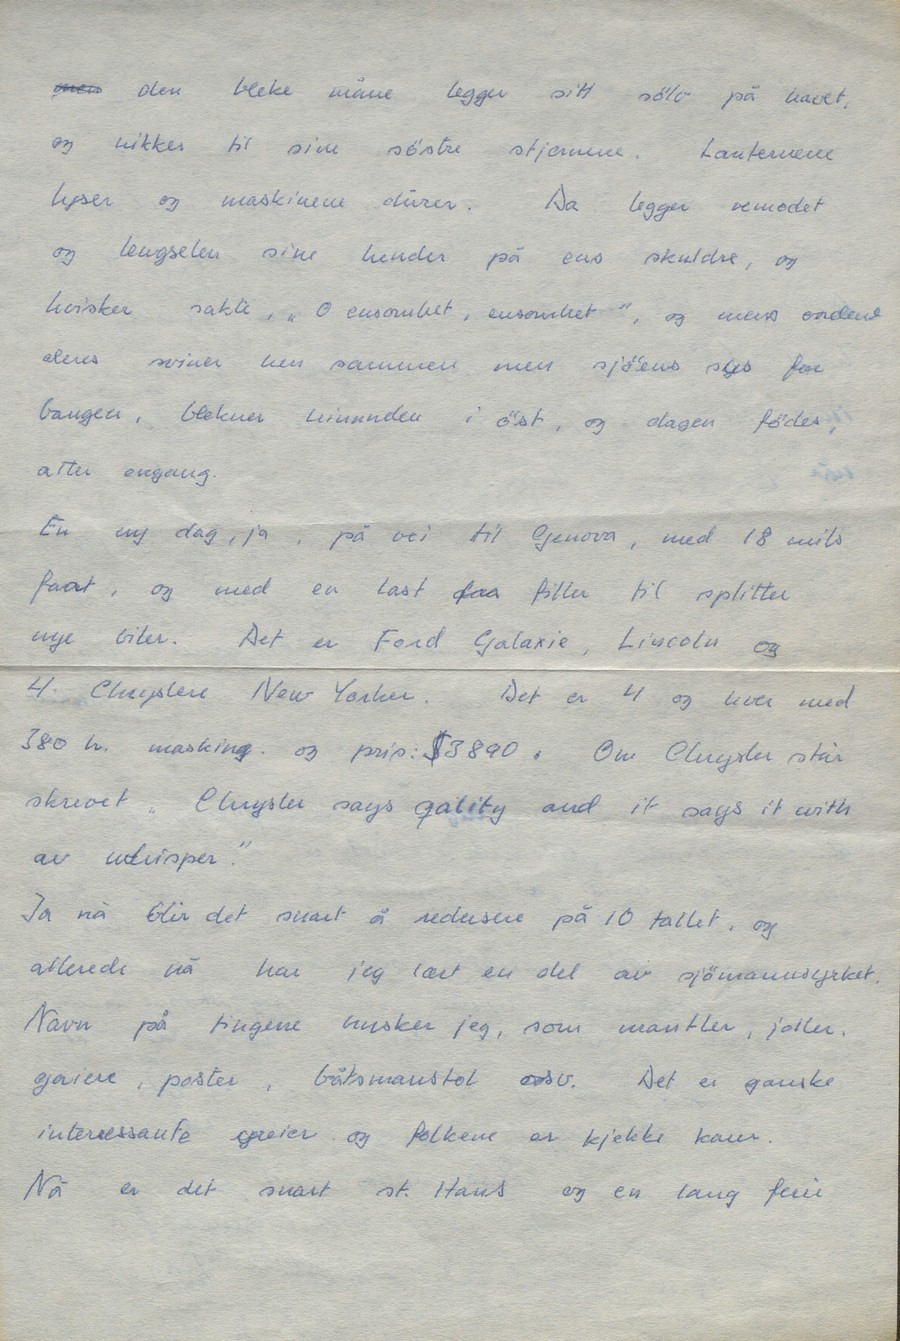 men den bleke måne legger sitt sölv på havet,
og nikker til sine söstre stjernene. Lanternene
lyser og maskinene dürer. Da legger vemodet
og lengselen sine hender på ens skuldre, og
hvisker sakte, „O ensomhet, ensomhet", og mens ordene
deres sviner hen sammen men sjöens sus for
baugen, blekner himmden i öst, og dagen födes,
atter engang.
En ny dag, ja, på vei til Genova, med 18 mils
faart, og med en last filler til splitter
nye biler. Det er Ford Galaxie, Lincoln og
4. Chryslere New Yorker. Det er 4 og hver med
380 h. masking. og pris: $3890. Om Chrysler står
skrevet „Chrysler says qality and it says it with
av whisper."
Ja nå blir det snart å redusere på 10 tallet, og
allerede nå har jeg lært en del av sjömannsyrket.
Navn på tingene husker jeg, som mantler, joller.
gaiere, poster, båtsmanstol osv. Det er ganske
interessante greier og folkene er kjekke karer.
Nå er det snart st. Hans og en lang ferie